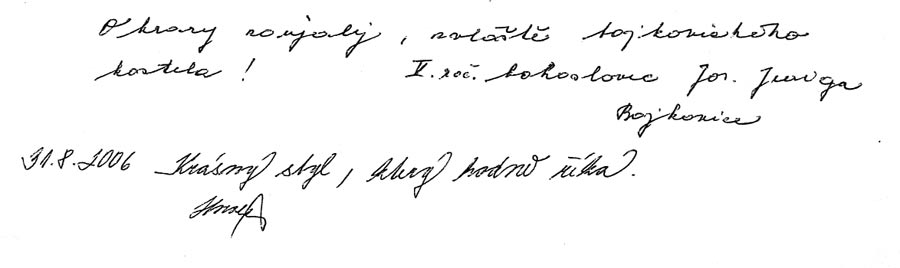 Obrazy zaujaly, zvláště bojkovického
kostela! II. roč. bohoslovec Jos. Juruga
Bojkovice
31.8.2006 Krásný styl, který hodně říká.